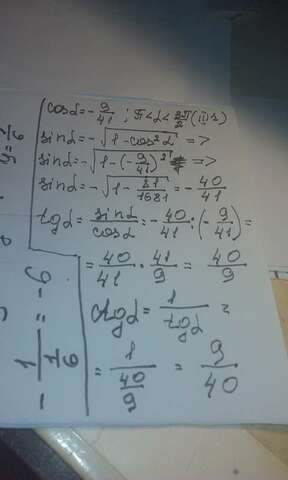 cosα = -9/41 ; π<α<3π/2 (III ч)
sinα = -√(1-cos²α) =>
sinα = -√(1-(-9/41)²) =>
sinα = -√(1-81/1681) = -40/41
tgα = sinα/cosα = -40/41 : (-9/41) =
= 40/41 · 41/9 = 40/9
ctgα = 1/tgα =
= 1/(40/9) = 9/40
y = 1/6
- 1/(1/6) = -6